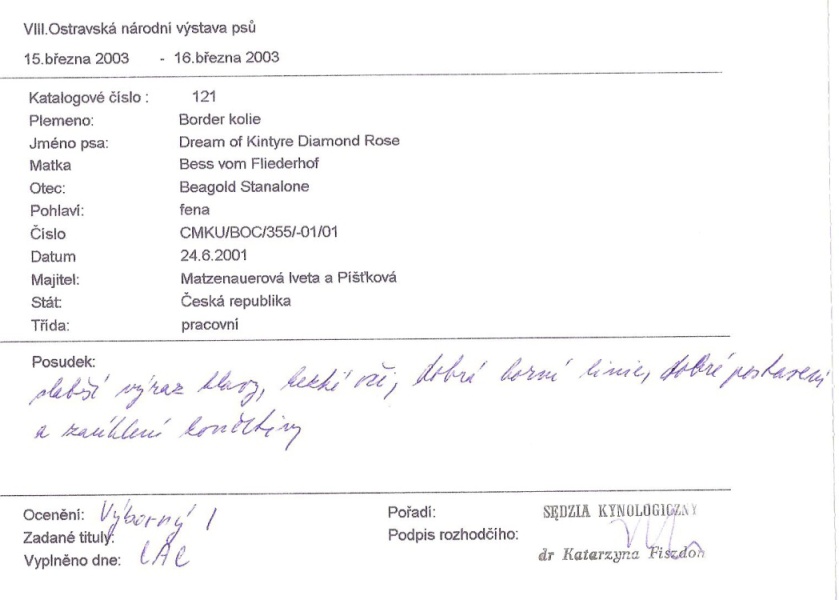 VIII.Ostravská národni výstava psů
15.března 2003 - 16.března 2003
Katalogové číslo : 121
Plemeno: Border kolie
Jméno psa: Dream of Kintyre Diamond Rose
Matka Bess vom Fliederhof
Otec: Beagold Stanalone
Pohlaví: fena
Číslo CMKU/BOC/355/-01/01
Datum 24.6.2001
Majitel: Matzenauerová Iveta a Píšťková
Stát: Česká republika
Třída: pracovní
Posudek:
slabší výraz hlavy, hezké oči, dobrá horní linie, dobré postavení
a zaúhlení končetiny
Ocenění: Výborný 1
Pořadí:
SĘDZIA KYNOLOGICZNY
Zadané tituly:
Podpis rozhodčího:
Vyplněno dne: CAC
dr Katarzyna Fiszdon